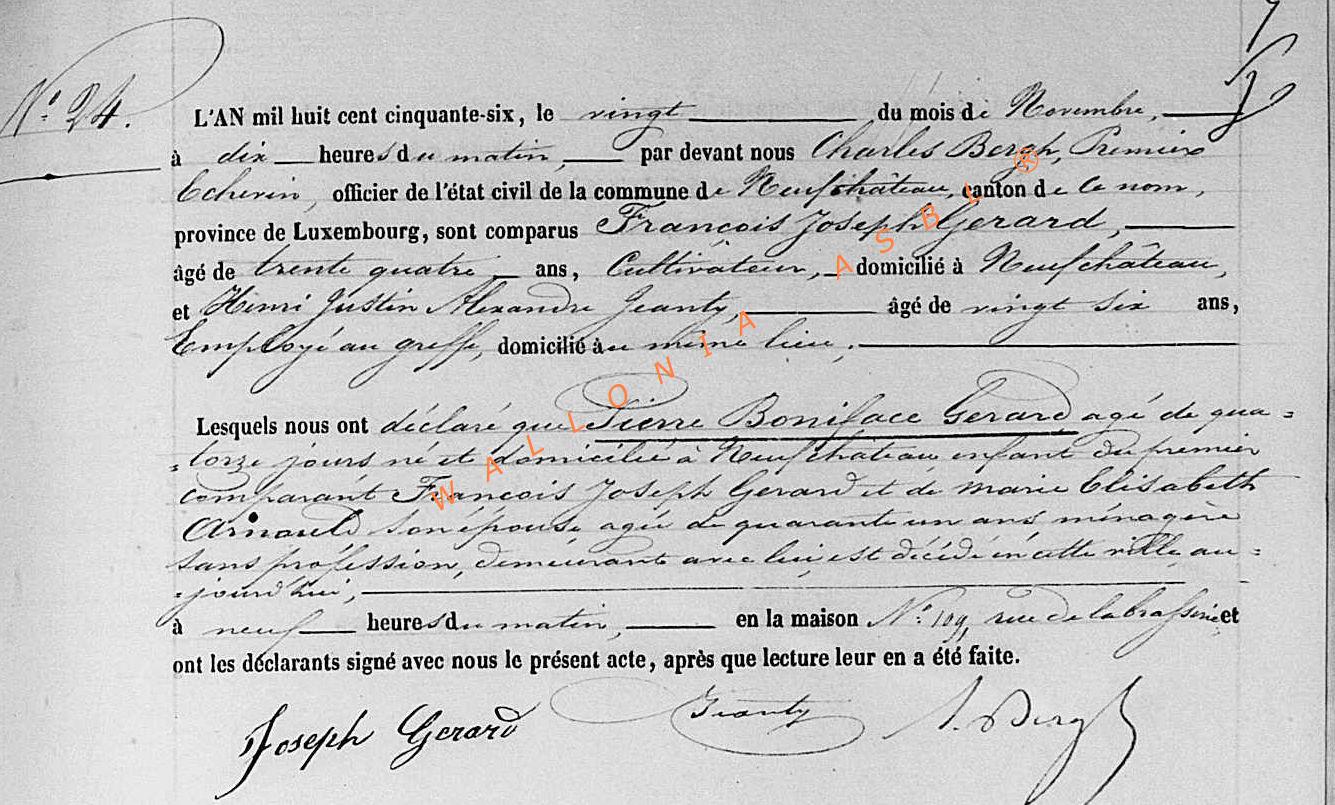 N° 24.
L'AN mil huit cent cinquante-six, le vingt du mois de Novembre,
à dix heures du matin, par devant nous Charles Bergh, Premier
Echevin, officier de l'état civil de la commune de Neufchâteau, canton de ce nom,
province de Luxembourg, sont comparus François Joseph Gerard,
âgé de trente quatre ans, Cultivateur, domicilié à Neufchâteau,
et Henri Justin Alexandre Jeanty, âgé de vingt six ans,
Employé au greffe, domicilié au même lieu,
Lesquels nous ont déclaré que Pierre Boniface Gerard agé de qua=
=torze jours né et domicilié à Neufchateau enfant du premier
comparant François Joseph Gerard et de marie Elisabeth
Arnould son épouse, agée de quarante un ans ménagère
sans profession, demeurant avec lui, est décédé en cette ville au=
=jourd'hui,
à neuf heures du matin, en la maison N° 109, rue de la brasserie et
ont les déclarants signé avec nous le présent acte, après que lecture leur en a été faite.
Joseph Gerard Jeanty Bergh
WALLONIA ASBL ®